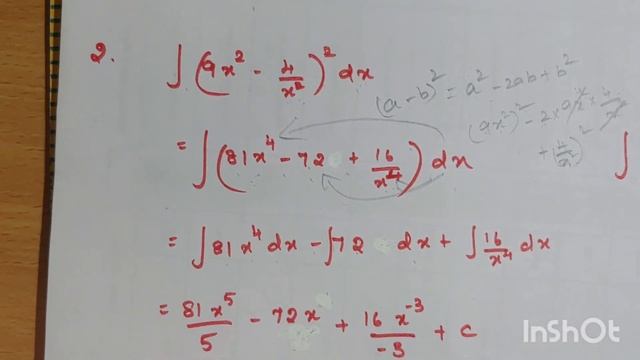 2. ∫ (9x² - 4/x²)² dx
(a-b)² = a² - 2ab + b²
(9x²)² - 2×9x²×4/x²
+ (4/x²)²
= ∫ (81x⁴ - 72 + 16/x⁴) dx
∫
= ∫ 81x⁴ dx - ∫72 dx + ∫ 16/x⁴ dx
= 81x⁵/5 - 72x + 16x⁻³/-3 + c
InShOt